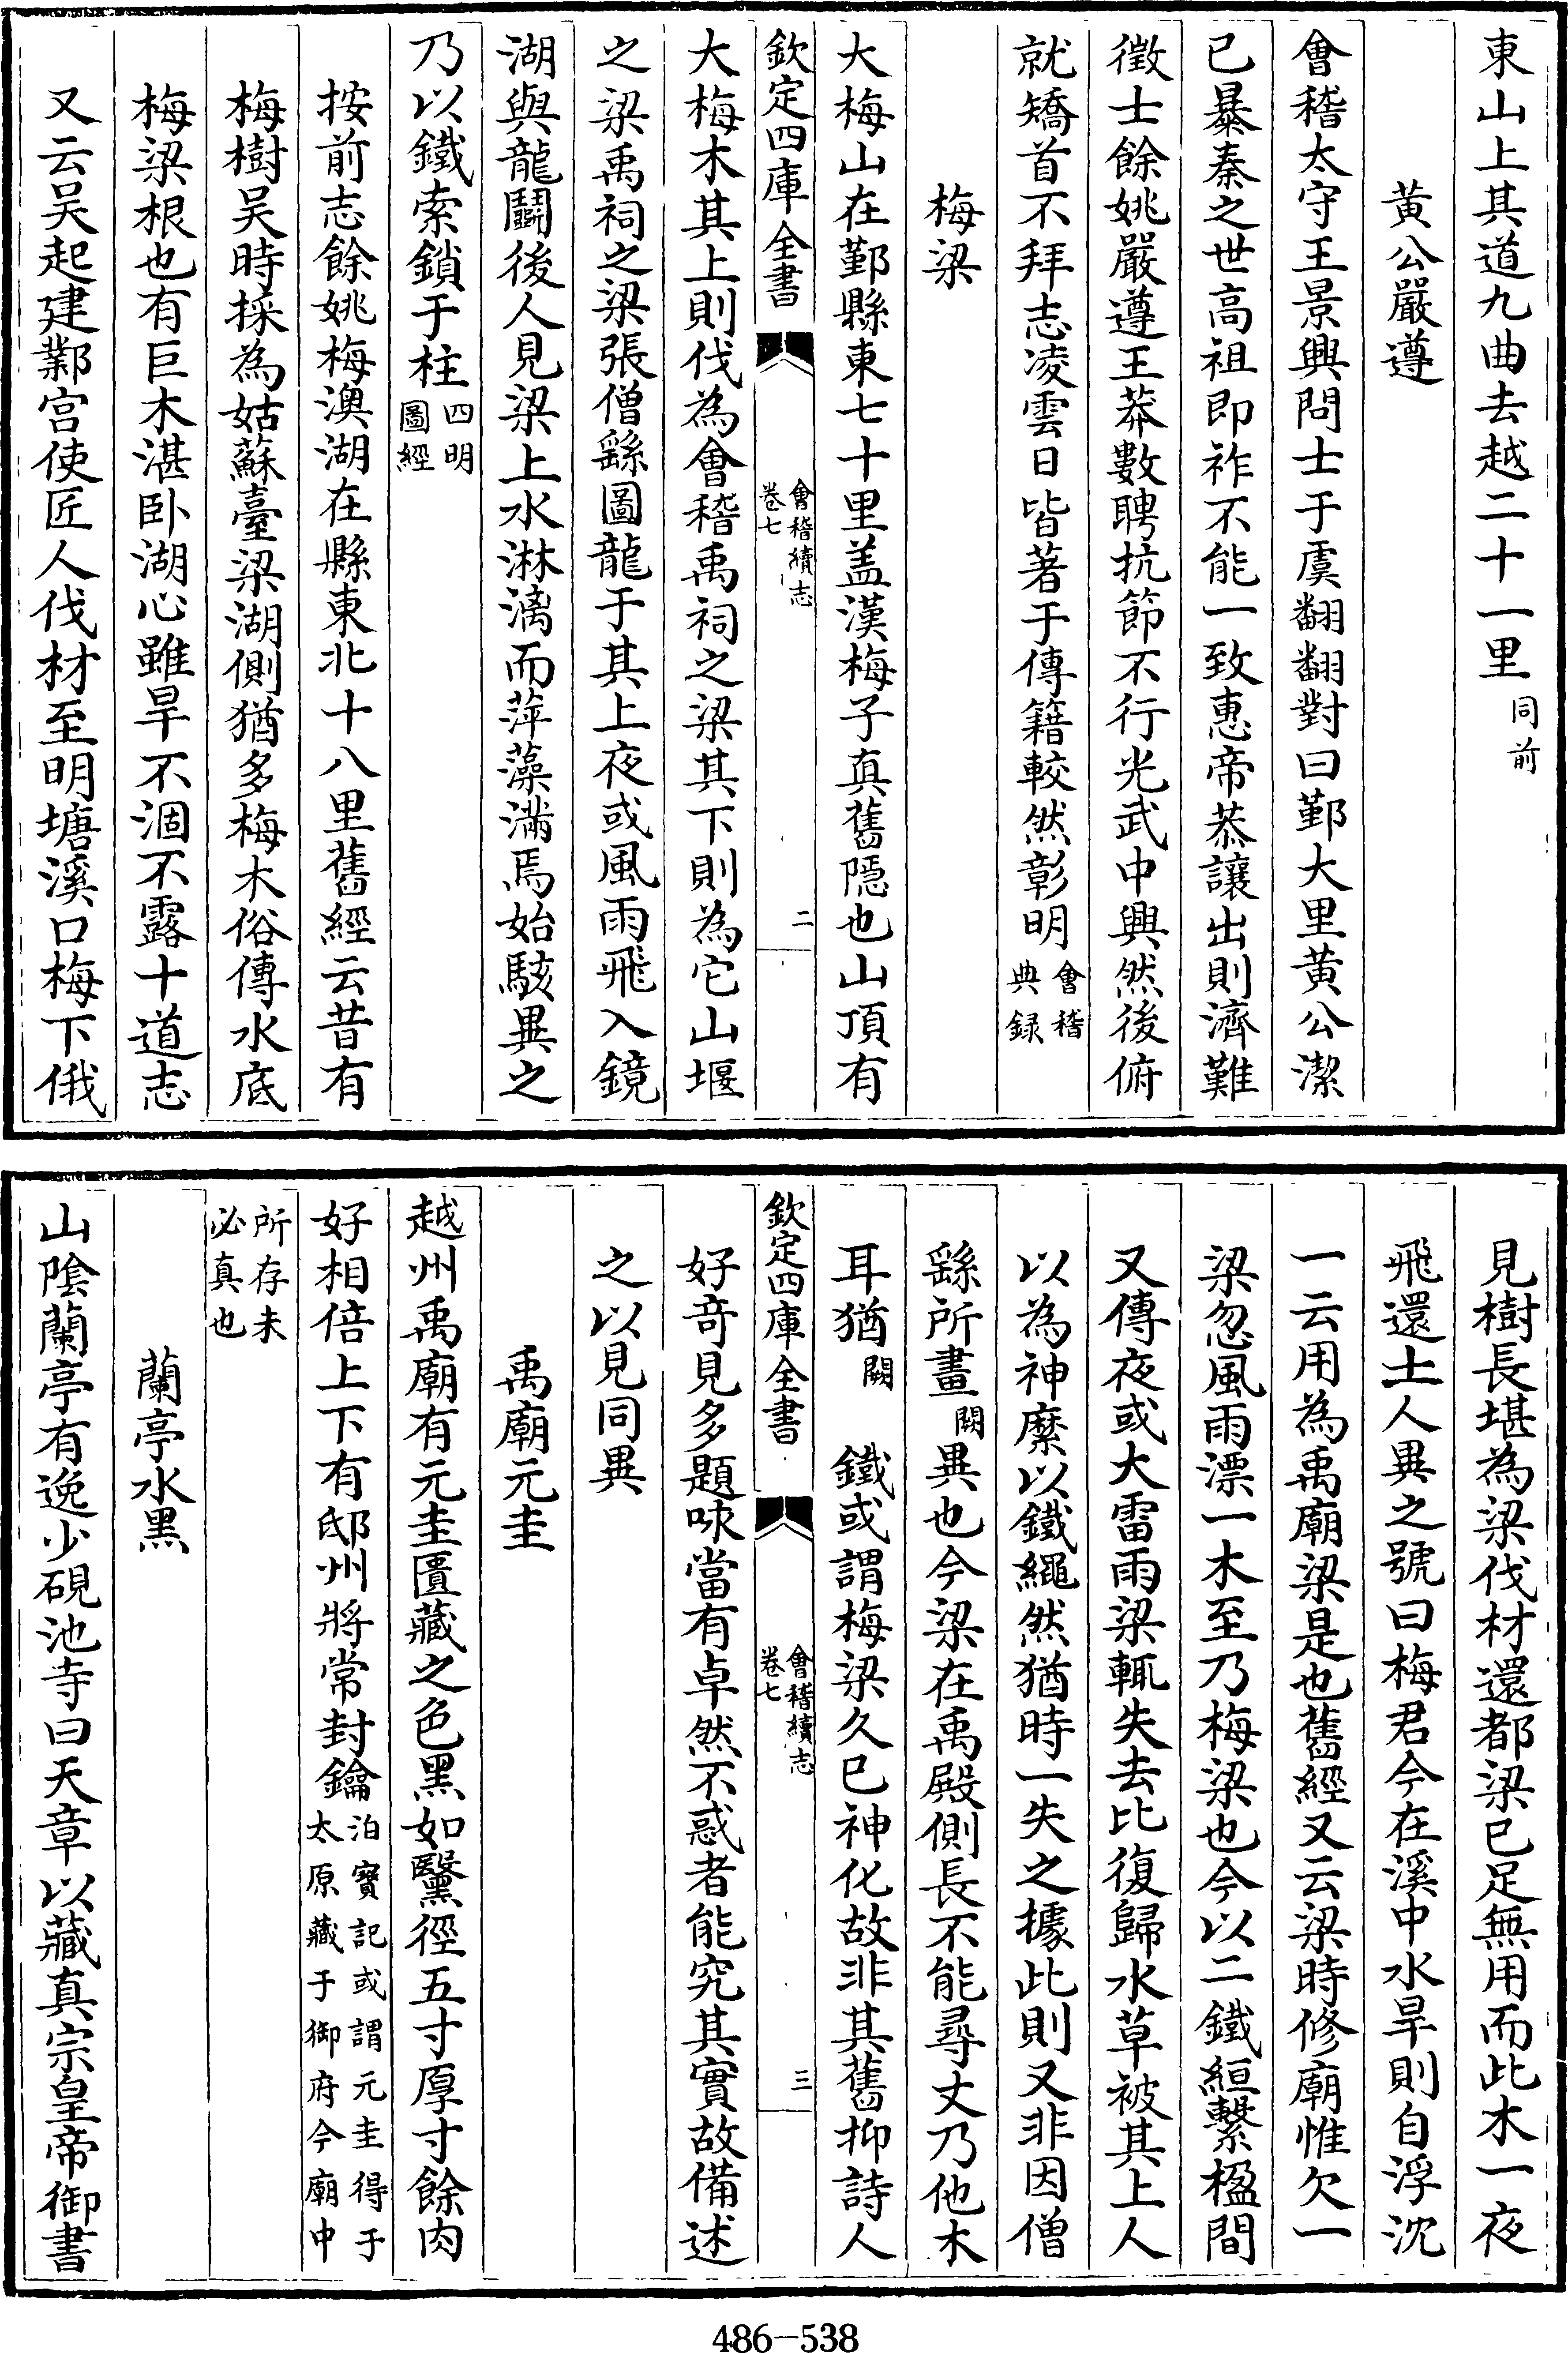 東山上其道九曲去越二十一里同前
黄公嚴遵
會稽太守王景興問士于虞翻翻對曰鄞大里黄公潔
已暴秦之世髙祖即祚不能一致惠帝恭讓出則濟難
徴士餘姚嚴遵王莽數聘抗節不行光武中興然後俯
就矯首不拜志凌雲日皆著于傳籍較然彰明會稽典録
梅梁
大梅山在鄞縣東七十里盖漢梅子真舊隠也山頂有
欽定四庫全書 會稽續志 卷七 二
大梅木其上則伐為會稽禹祠之梁其下則為它山堰
之梁禹祠之梁張僧繇圖龍于其上夜或風雨飛入鏡
湖與龍鬭後人見梁上水淋漓而萍藻滿焉始駭異之
乃以鐵索鎖于柱四明圖經
按前志餘姚梅澳湖在縣東北十八里舊經云昔有
梅樹吴時採為姑蘇臺梁湖側猶多梅木俗傳水底
梅梁根也有巨木湛卧湖心雖旱不涸不露十道志
又云吴起建鄴宫使匠人伐材至明塘溪口梅下俄
見樹長堪為梁伐材還都梁已足無用而此木一夜
飛還土人異之號曰梅君今在溪中水旱則自浮沈
一云用為禹廟梁是也舊經又云梁時修廟惟欠一
梁忽風雨漂一木至乃梅梁也今以二鐵絙繫楹間
又傳夜或大雷雨梁輒失去比復歸水草被其上人
以為神縻以鐵繩然猶時一失之據此則又非因僧
繇所畫闕異也今梁在禹殿側長不能尋丈乃他木
耳猶闕 鐵或謂梅梁久已神化故非其舊抑詩人
欽定四庫全書 會稽續志 卷七 三
好竒見多題咏當有卓然不惑者能究其實故備述
之以見同異
禹廟元圭
越州禹廟有元圭匱藏之色黑如黳徑五寸厚寸餘肉
好相倍上下有邸州將常封鑰洎寳記或謂元圭得于太原藏于御府今廟中
所存未必真也
蘭亭水黑
山隂蘭亭有逸少硯池寺曰天章以藏真宗皇帝御書
486-538